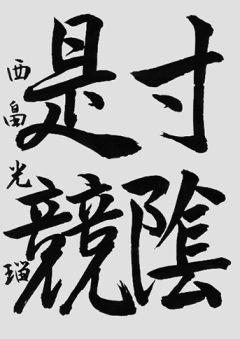 寸陰
是競
西畠光瑠